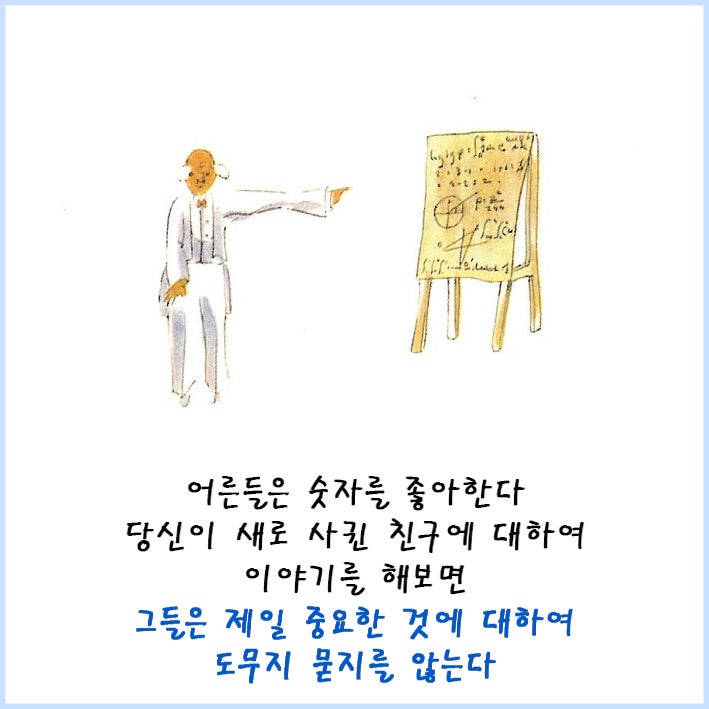 어른들은 숫자를 좋아한다
당신이 새로 사귄 친구에 대하여
이야기를 해보면
그들은 제일 중요한 것에 대하여
도무지 묻지를 않는다